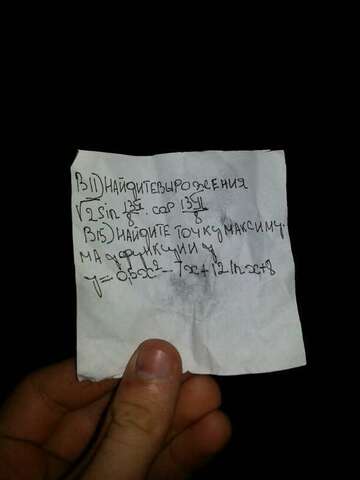 В11) НАЙДИТЕ ВЫРОЖЕНИЯ
√2 sin 13π/8 · cos 13π/8
В15) НАЙДИТЕ ТОЧКУ МАКСИМУ-
МА ФУНКЦИИ у
y = 0,5x² - 7x + 12 ln x + 8